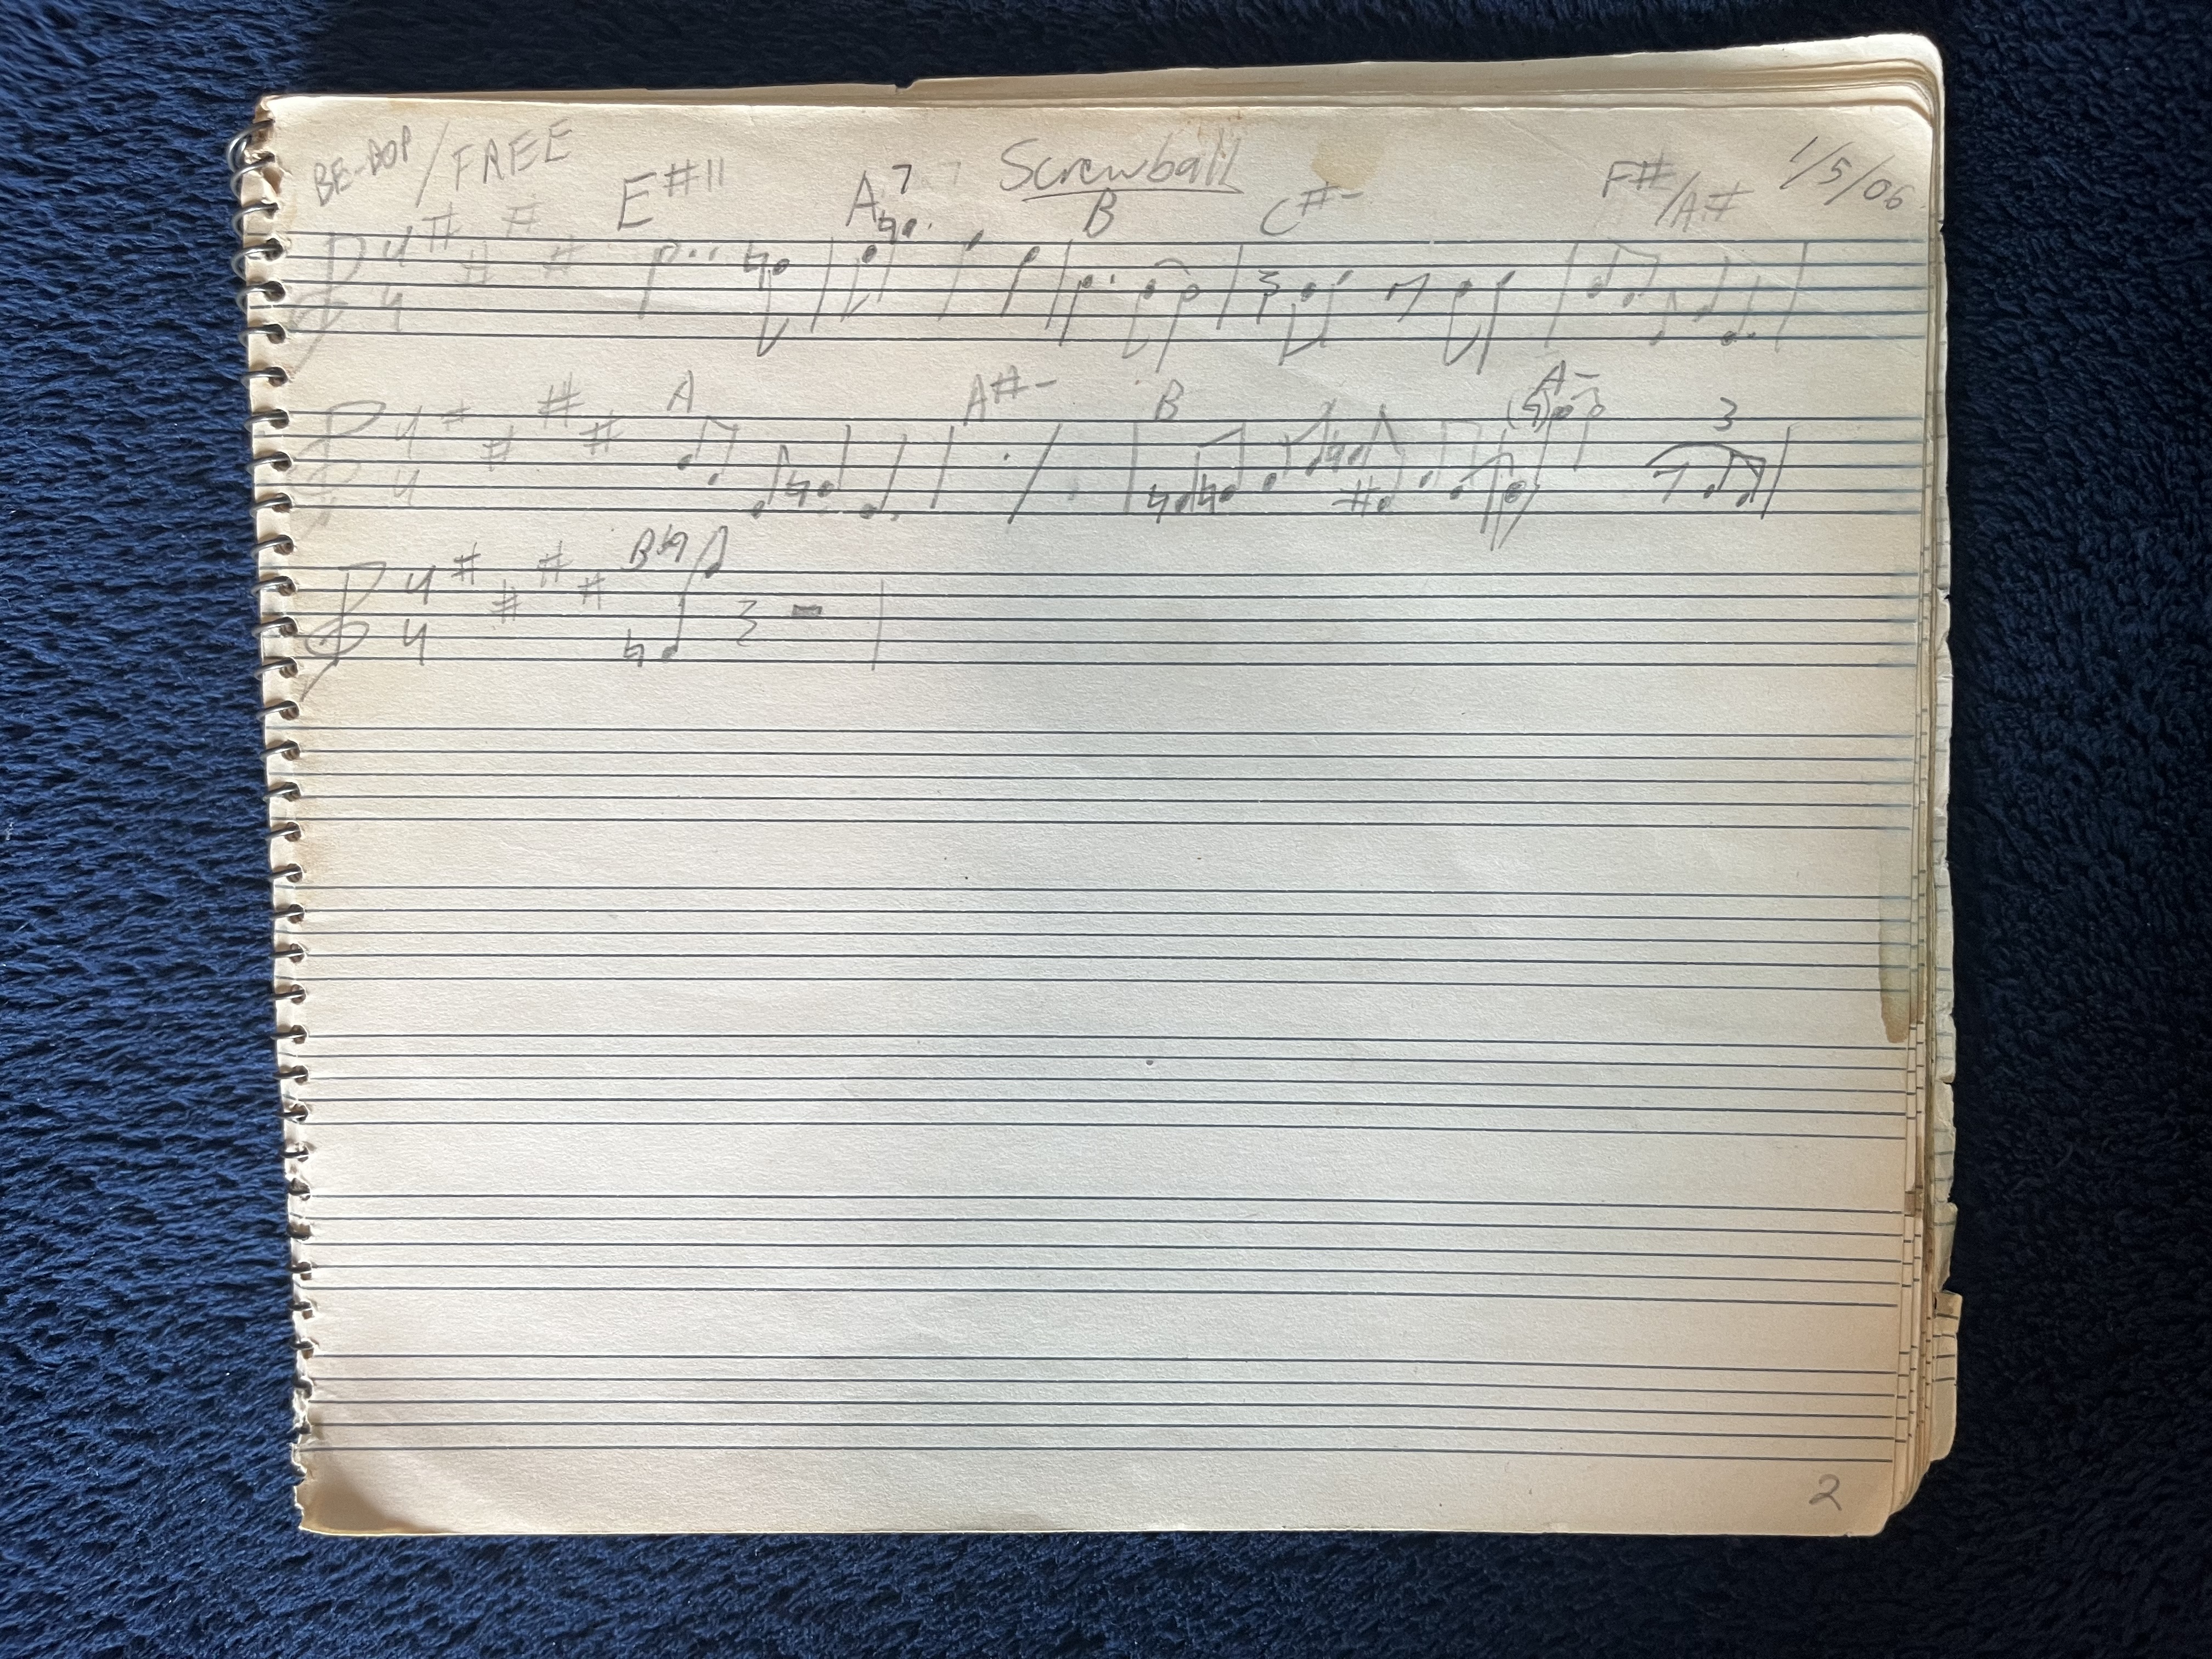 BE-BOP/FREE Screwball 1/5/06
E#11 A7 B C#- F#/A#
4
4
A A#- B A-
4
4
3
4
4
2